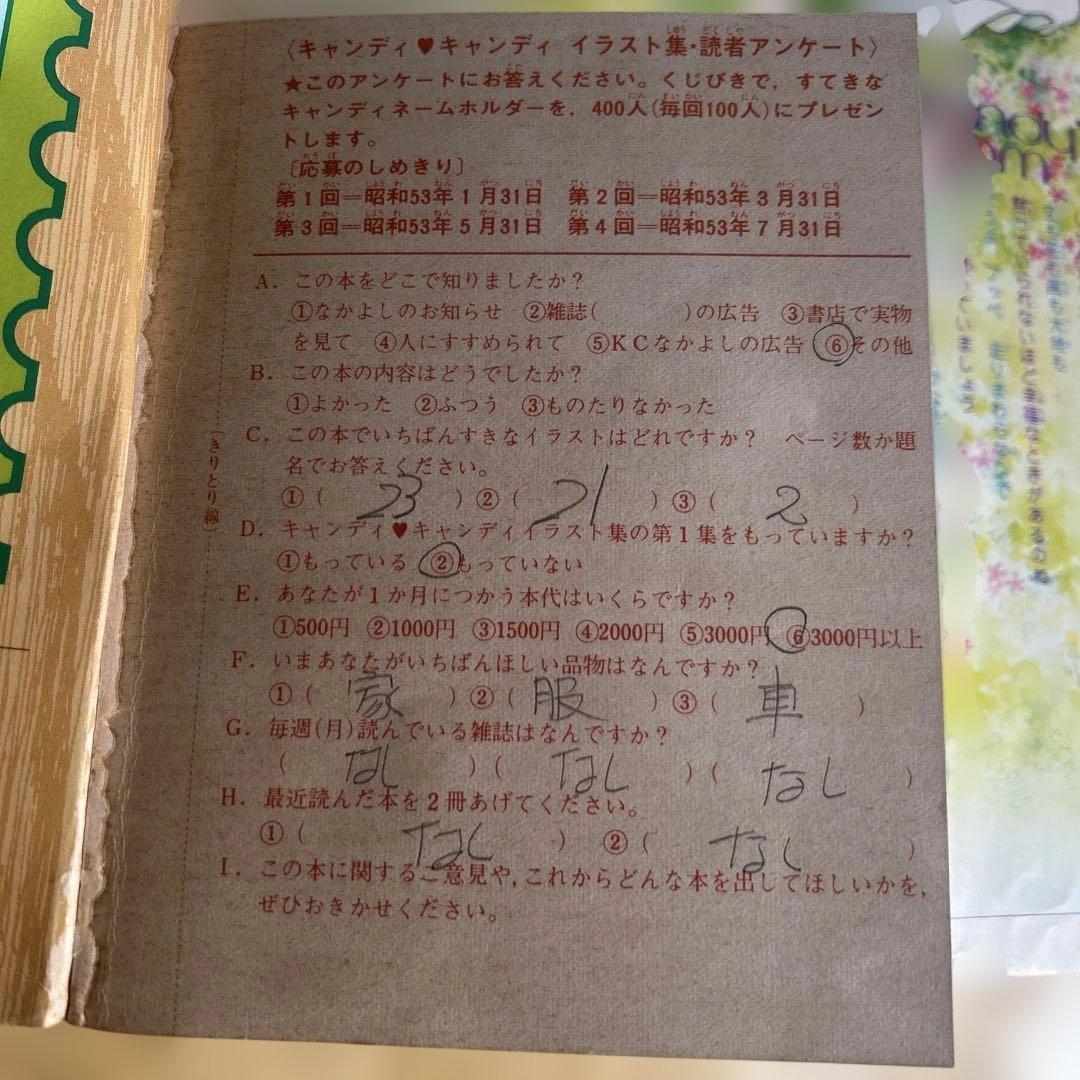 〈キャンディ♥キャンディ イラスト集・読者アンケート〉
★このアンケートにお答えください。くじびきで，すてきな
キャンディネームホルダーを，400人(毎回100人)にプレゼン
トします。
〔応募のしめきり〕
第1回＝昭和53年1月31日 第2回＝昭和53年3月31日
第3回＝昭和53年5月31日 第4回＝昭和53年7月31日
A．この本をどこで知りましたか？
①なかよしのお知らせ ②雑誌( )の広告 ③書店で実物
を見て ④人にすすめられて ⑤KCなかよしの広告 ⑥その他
B．この本の内容はどうでしたか？
①よかった ②ふつう ③ものたりなかった
C．この本でいちばんすきなイラストはどれですか？ ページ数か題
名でお答えください。
①( 23 ) ②( 21 ) ③( 2 )
D．キャンディ♥キャンディイラスト集の第1集をもっていますか？
①もっている ②もっていない
E．あなたが1か月につかう本代はいくらですか？
①500円 ②1000円 ③1500円 ④2000円 ⑤3000円 ⑥3000円以上
F．いまあなたがいちばんほしい品物はなんですか？
①( 家 ) ②( 服 ) ③( 車 )
G．毎週(月)読んでいる雑誌はなんですか？
( なし )( なし )( なし )
H．最近読んだ本を2冊あげてください。
①( なし ) ②( なし )
I．この本に関するご意見や，これからどんな本を出してほしいかを，
ぜひおきかせください。
(きりとり線)